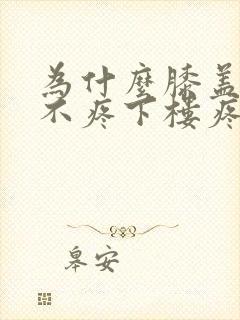 為什麼膝蓋
不疼下樓疼
皋安